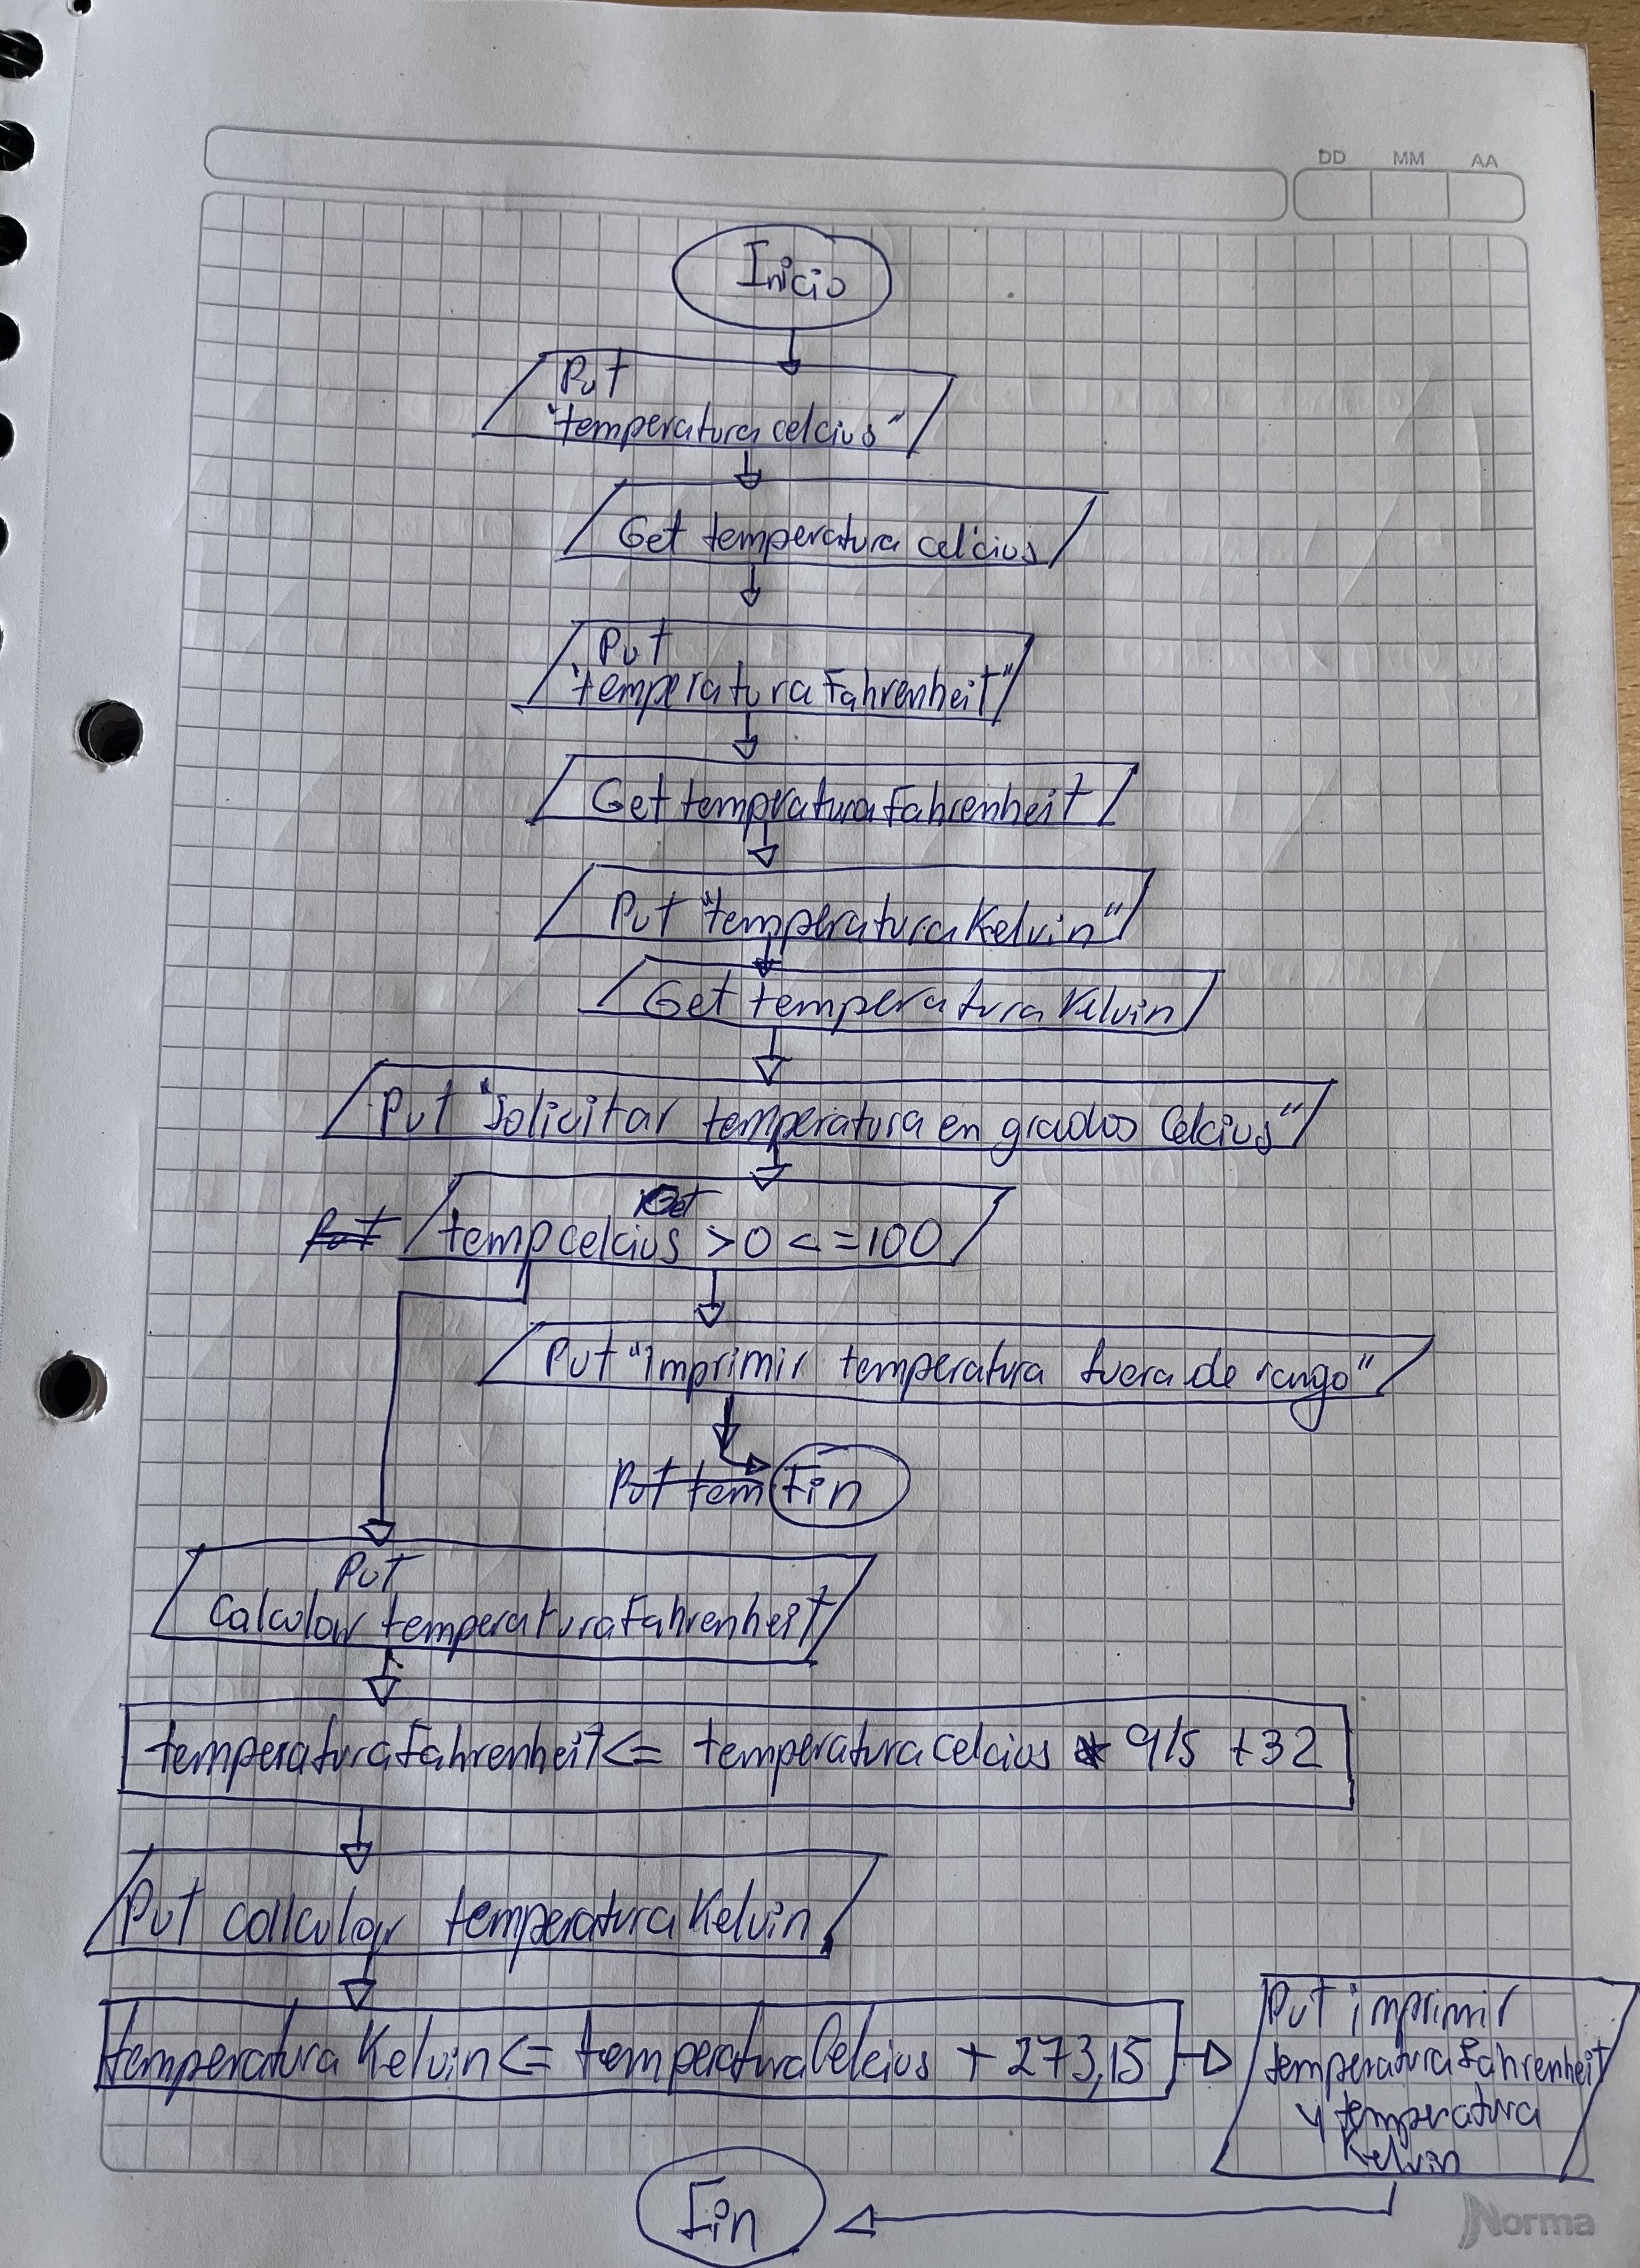 DD MM AA
Inicio
Put
"temperatura celcius"
Get temperatura celcius
Put
"temperatura Fahrenheit"
Get tempratura Fahrenheit
Put "temperatura Kelvin"
Get temperatura Kelvin
Put "Solicitar temperatura en grados Celcius"
Get
Put temp celcius >0 <=100
Put "imprimir temperatura fuera de rango"
Put tem Fin
Put
Calcular temperatura Fahrenheit
temperatura Fahrenheit <= temperatura celcius * 9/5 +32
Put callcular temperatura Kelvin
temperatura Kelvin <= temperatura Celcius + 273,15
Put imprimir
temperatura Fahrenheit
y temperatura
Kelvin
Fin
Norma